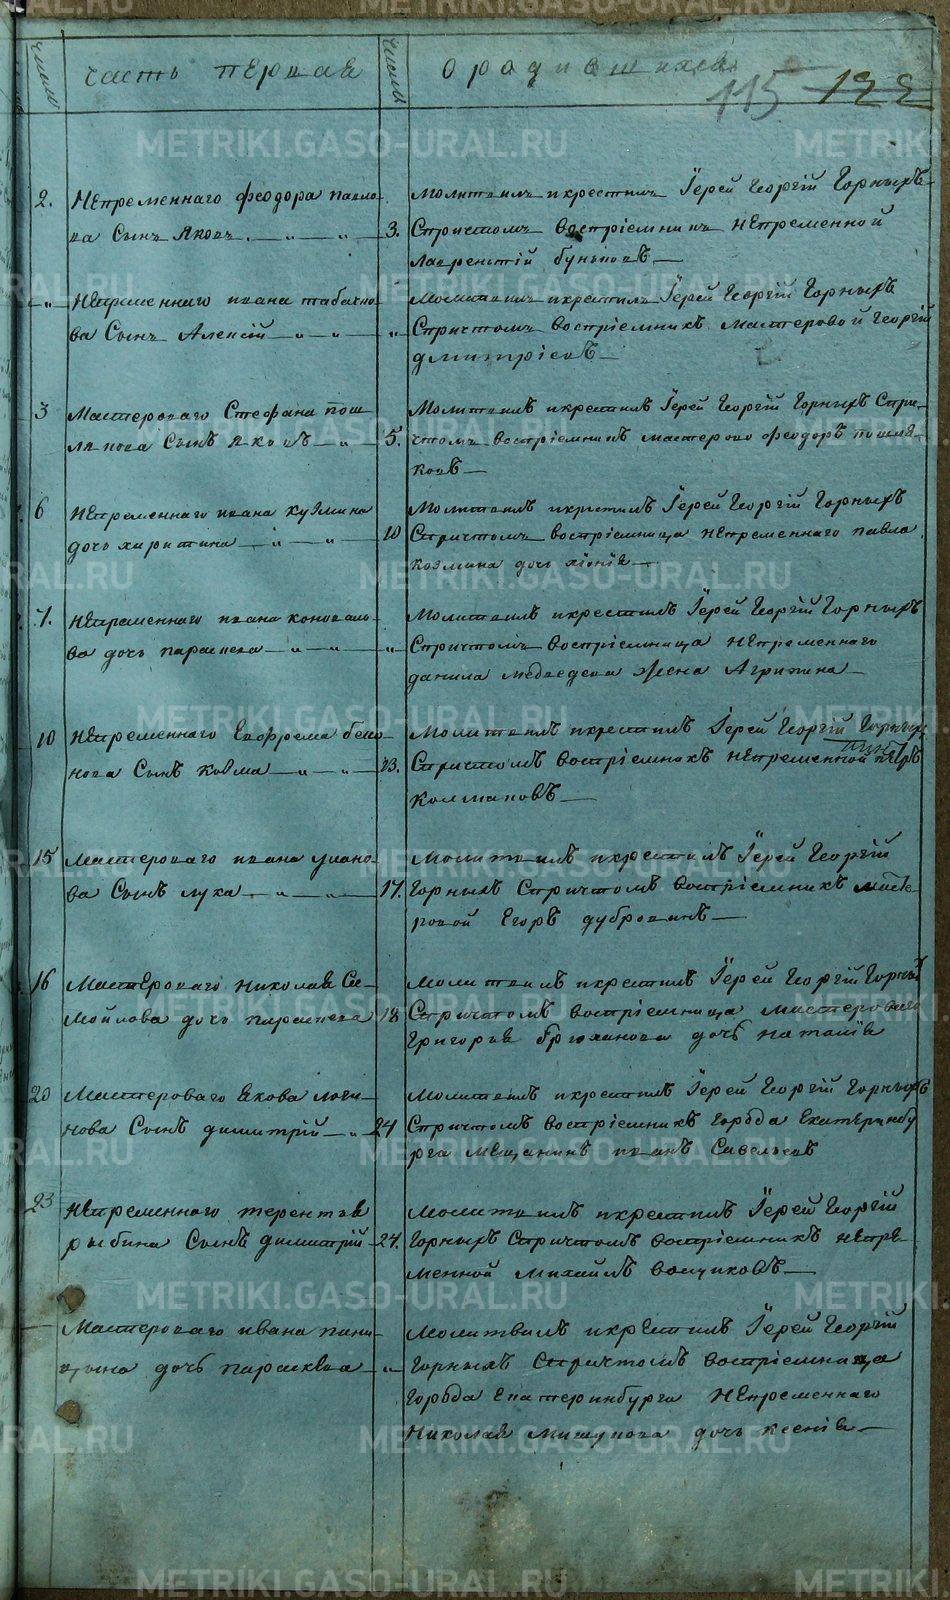 число часть первая число о родившихся
115 122
2. Непременнаго Феодора павло
ва Сынъ Яковъ 3.
Молитвилъ икрестилъ Їерей Георгій Горныхъ
Спричтомъ воспріемникъ непременной
Лаврентій
„ Непременнаго ивана табачко
ва Сынъ Алексій „
Молитвилъ икрестилъ Їерей Георгій Горныхъ
Спричтомъ воспріемникъ мастеровой Георгій
дмитріевъ
3 Мастероваго Стефана пош
лякова Сынъ Яковъ 5.
Молитвилъ икрестилъ Їерей Георгій Горныхъ Спри
чтомъ воспріемникъ мастерово феодоръ пошля
ковъ
6 Непременнаго ивана кузмина
дочь харитина 10
Молитвилъ икрестилъ Їерей Георгій Горныхъ
Спричтомъ воспріемница непременнаго павла
козмина дочь хіонія
7. Непременнаго ивана коновало
ва дочь параскева „
Молитвилъ икрестилъ Їерей Георгій Горныхъ
Спричтомъ воспріемница непременнаго
данила медведева жена Агрипина
10 Непременнаго Евфрема
нова Сынъ козма 13.
Молитвилъ икрестилъ Їерей Георгій Горныхъ
Спричтомъ воспріемникъ непременной петръ
колмаковъ
15 Мастероваго ивана улано
ва Сынъ лука 17.
Молитвилъ икрестилъ Їерей Георгій
Горныхъ Спричтомъ воспріемникъ масте
ровой Егоръ дубровинъ
16 Мастероваго николая Са
мойлова дочь параскева 18
Молитвилъ икрестилъ Їерей Георгій Горныхъ
Спричтомъ воспріемница мастероваго
Григорья брюханова дочь наталія
20 Мастероваго Якова логи
нова Сынъ димитрій 24
Молитвилъ икрестилъ Їерей Георгій Горныхъ
Спричтомъ воспріемникъ города Екатеринбу
рга мещанинъ иванъ Савельевъ
23 Непременнаго терентья
рыбина Сынъ димитрій 24.
Молитвилъ икрестилъ Їерей Георгій
Горныхъ Спричтомъ воспріемникъ непре
менной михаилъ волчиковъ
Мастероваго ивана
дочь параскева „
Молитвилъ икрестилъ Їерей Георгій
Горныхъ Спричтомъ воспріемница
города Екатеринбурга непременнаго
николая мишукова дочь ксенія
METRIKI.GASO-URAL.RU